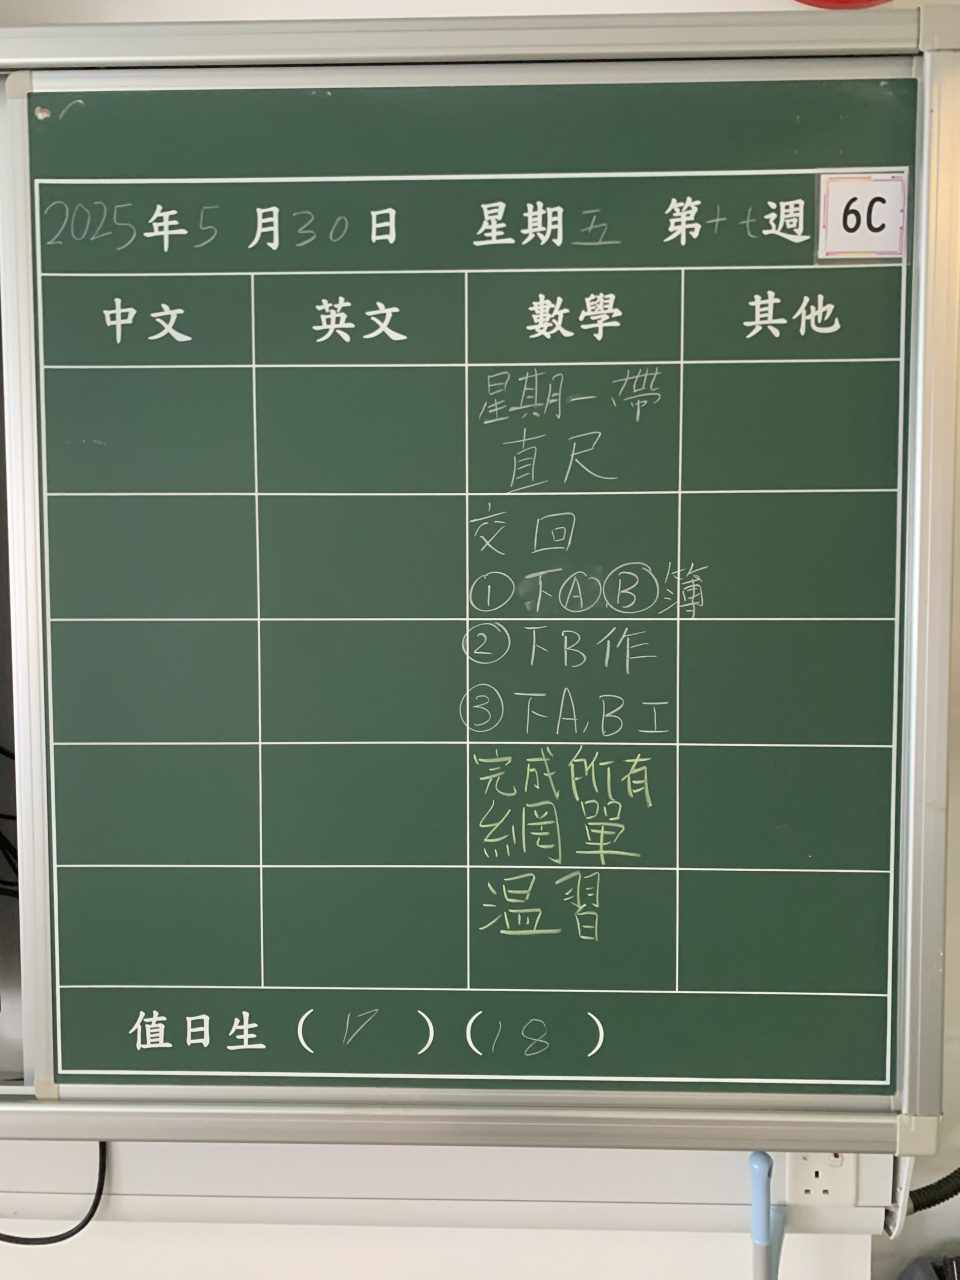 2025年5月30日 星期五 第十七週 6C
中文 英文 數學 其他
星期一帶
直尺
交回
①下Ⓐ,Ⓑ簿
②下B作
③下A,B工
完成所有
網單
温習
值日生(17)(18)